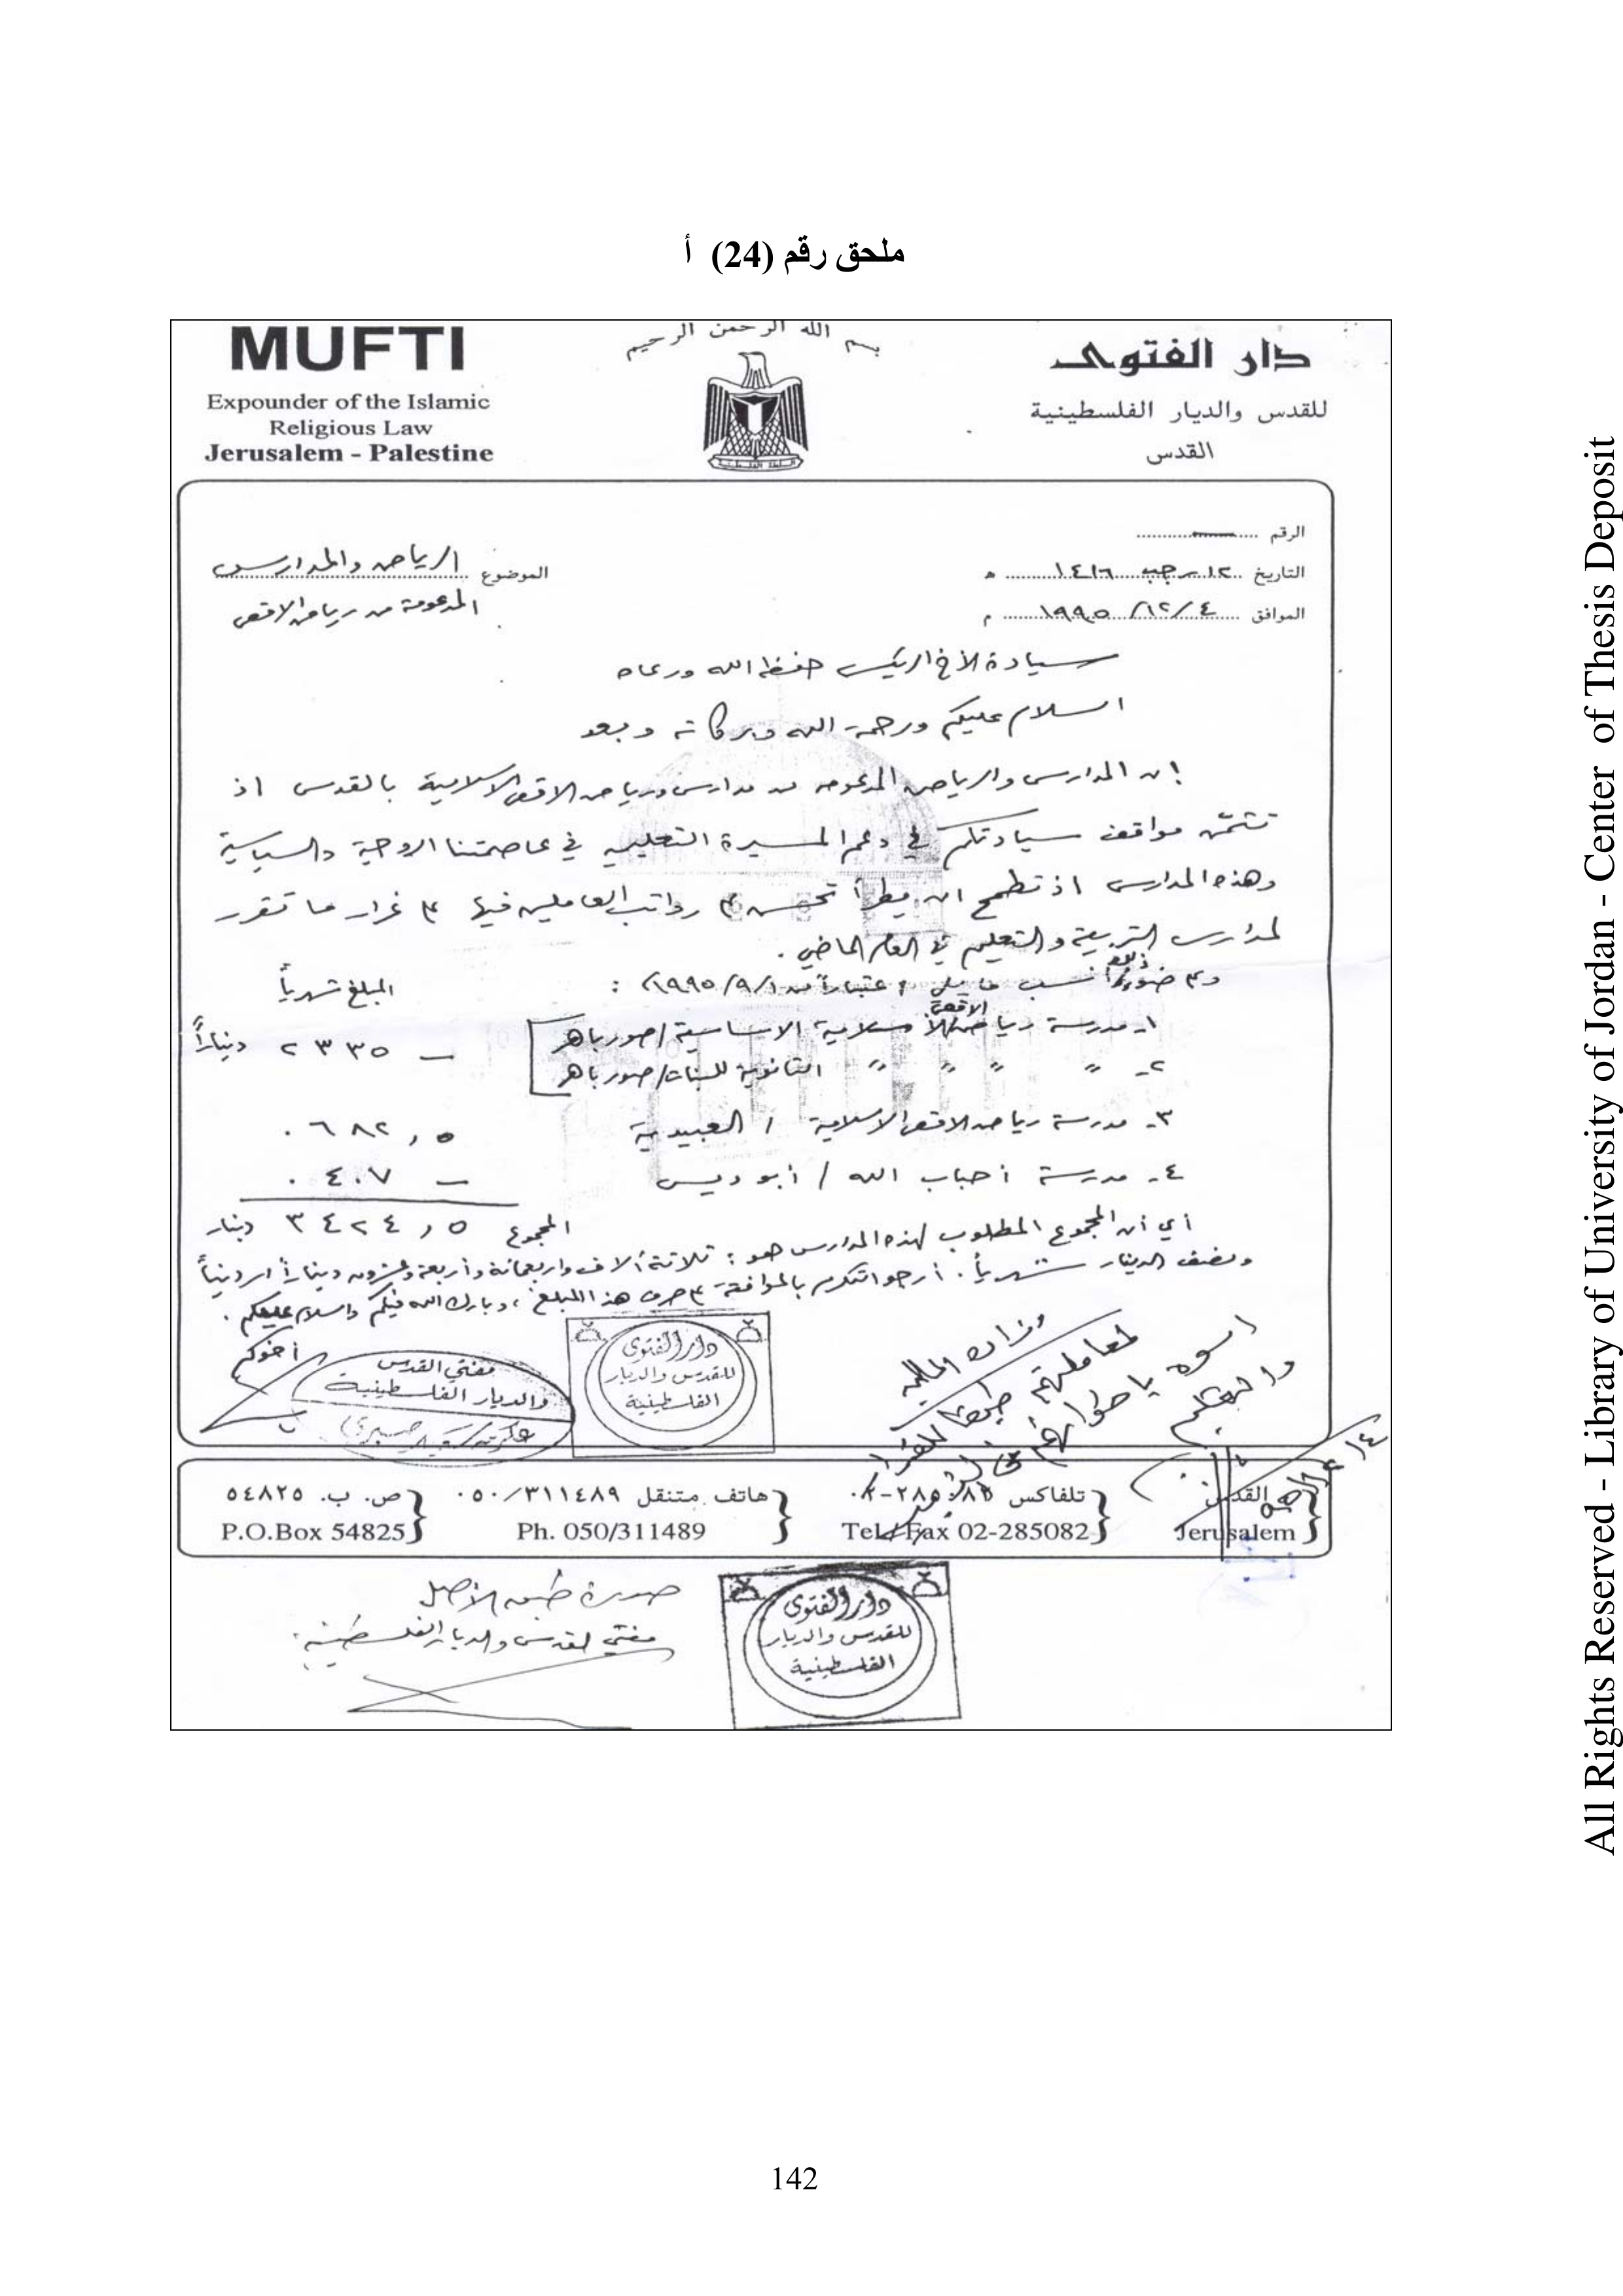 ملحق رقم (24) أ
MUFTI
Expounder of the Islamic
Religious Law
Jerusalem - Palestine
بسم الله الرحمن الرحيم
دار الفتوى
للقدس والديار الفلسطينية
القدس
الرقم
التاريخ ١٢ رجب ١٤١٦ هـ
الموافق ٤/١٢/١٩٩٥ م
الموضوع الرياض والمدارس
المدعومة من رياض الاقصى
سيادة الأخ الرئيس حفظه الله ورعاه
السلام عليكم ورحمة الله وبركاته وبعد
إن المدارس والرياض المدعومة من مدارس ورياض الاقصى الاسلامية بالقدس اذ
تثمّن مواقف سيادتكم في دعم المسيرة التعليمية في عاصمتنا الروحية والسياسية
وهذه المدارس اذ تطمح ان يطرأ تحسن على رواتب العاملين فيها على غرار ما تقرر
لمدارس التربية والتعليم في العام الماضي .
وعلى ضوء ذلك أنسب ما يلي اعتباراً من ١/٩/١٩٩٥ :
المبلغ شهرياً
١- مدرسة رياض الاقصى الاسلامية الاساسية/صورباهر
٢- " " " " الثانوية للبنات/صورباهر
٢٣٣٥ — ديناراً
٣- مدرسة رياض الاقصى الاسلامية / العبيدية ٠٦٨٢,٥
٤- مدرسة أحباب الله / أبو ديس ٠٤٠٧ —
المجموع ٣٤٢٤,٥ دينار
أي أن المجموع المطلوب لهذه المدارس هو : ثلاثة آلاف واربعمائة وأربعة وعشرون ديناراً اردنياً
ونصف الدينار شهرياً . أرجو التكرم بالموافقة على صرف هذا المبلغ ، وبارك الله فيكم والسلام عليكم .
أخوكم
مفتي القدس
والديار الفلسطينية
عكرمة سعيد صبري
دار الفتوى
للقدس والديار
الفلسطينية
وزارة المالية
لمعاملتهم
اسوة
القدس
Jerusalem
تلفاكس
Tel/Fax 02-285082
هاتف متنقل ٠٥٠/٣١١٤٨٩
Ph. 050/311489
ص. ب. ٥٤٨٢٥
P.O.Box 54825
صورة طبق الأصل
مفتي القدس والديار الفلسطينية
دار الفتوى
للقدس والديار
الفلسطينية
142
All Rights Reserved - Library of University of Jordan - Center of Thesis Deposit